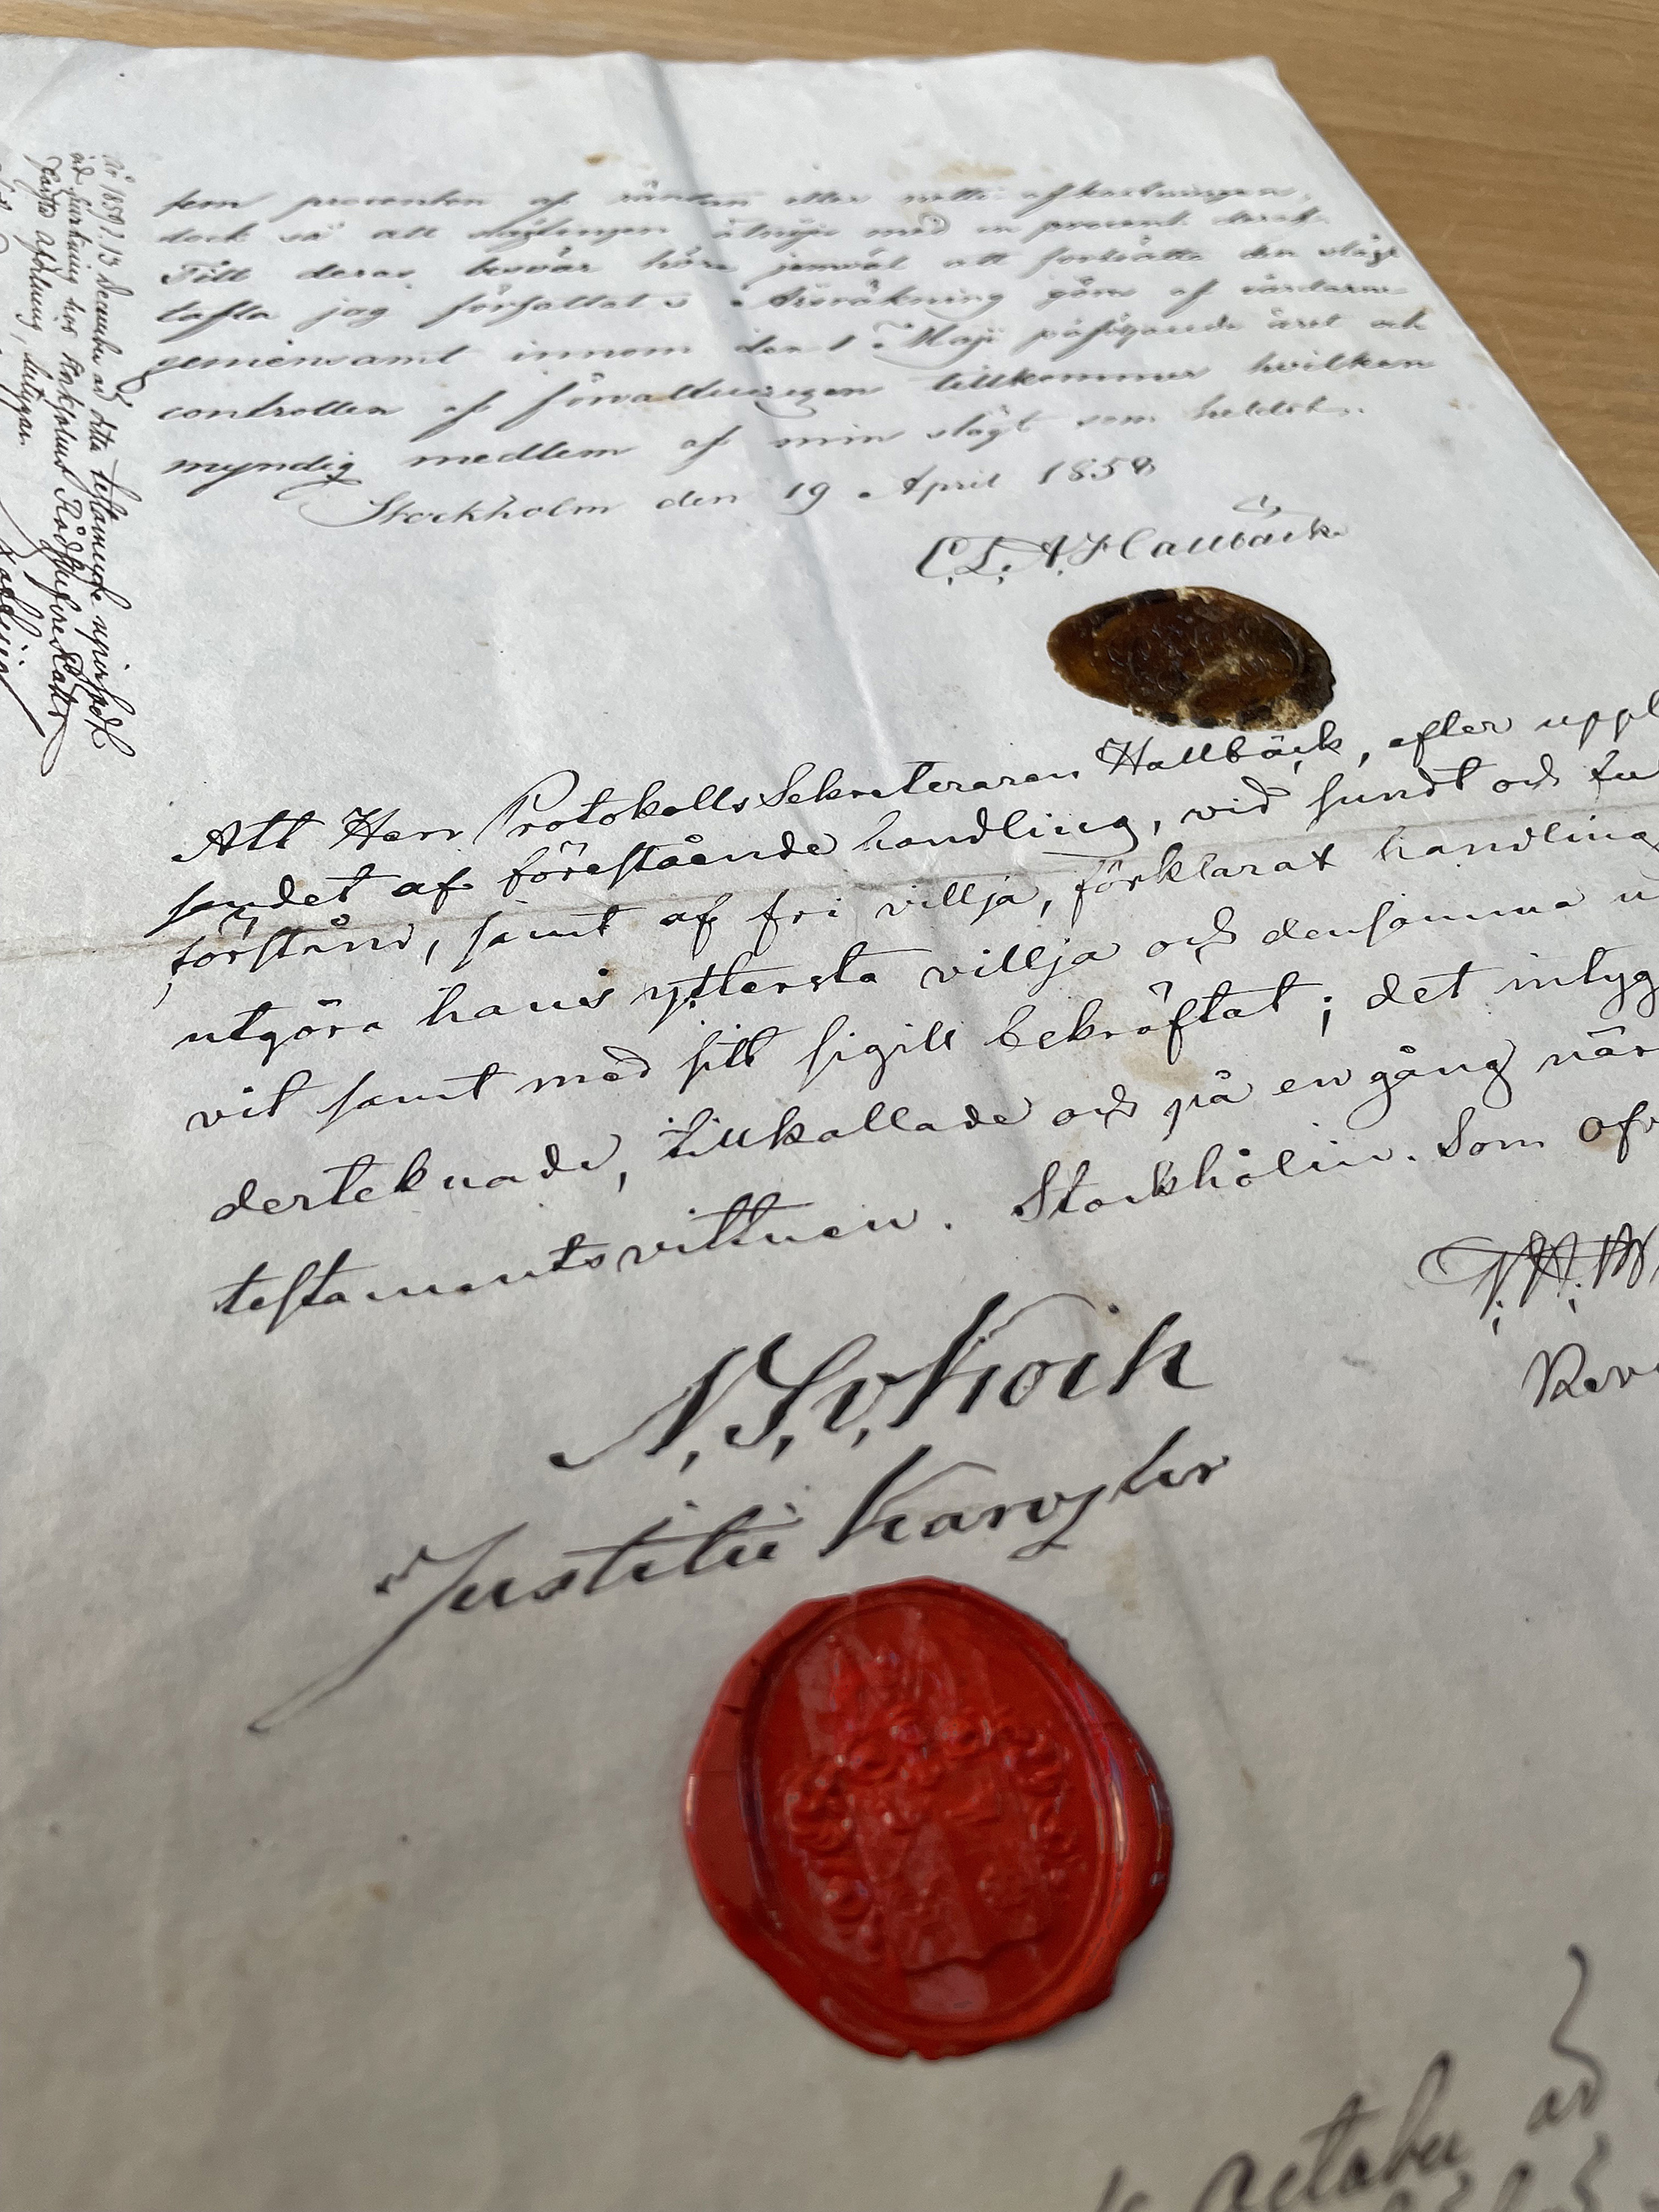 fem procenten af räntan eller netto afkastningen,
dock så att säflingen åtnöje med en procent deraf.
Till deras besvär höre jemväl att fortsätta den slägt
tafla jag författat. Årsräkning göres af vårdarne
gemensamt innom den 1 Maji påföljande året och
controllen af förvaltningen tillkommer hvilken
myndig medlem af min slägt som heldst.
Stockholm den 19 April 1858
C.L.A. Hallbäck
Att Herr ProtokollsSekreteraren Hallbäck, efter uppl
sandet af förestående handling, vid sundt och fu
förstånd, samt af fri villja, förklarat handling
utgöra hans yttersta villja och densamma u
vit samt med sitt sigill bekräftat; det intyg
derteknade, tillkallade och på en gång när
testamentsvittnen. Stockholm. Som ofv
N.S.v.Koch
Justitie Kanzler
Rev
År 1859 13 December är detta testamente uppvisadt
vid hos Stockholms RådhufvuRätts
afdelning, betygar
October